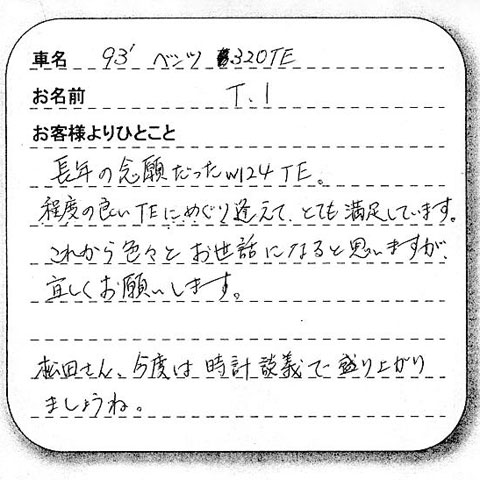 車名 93' ベンツ 320TE
お名前 T.I
お客様よりひとこと
長年の念願だったW124 TE。
程度の良いTEにめぐり逢えて、とても満足しています。
これから色々とお世話になると思いますが、
宜しくお願いします。
松田さん、今度は時計談義で盛り上がり
ましょうね。